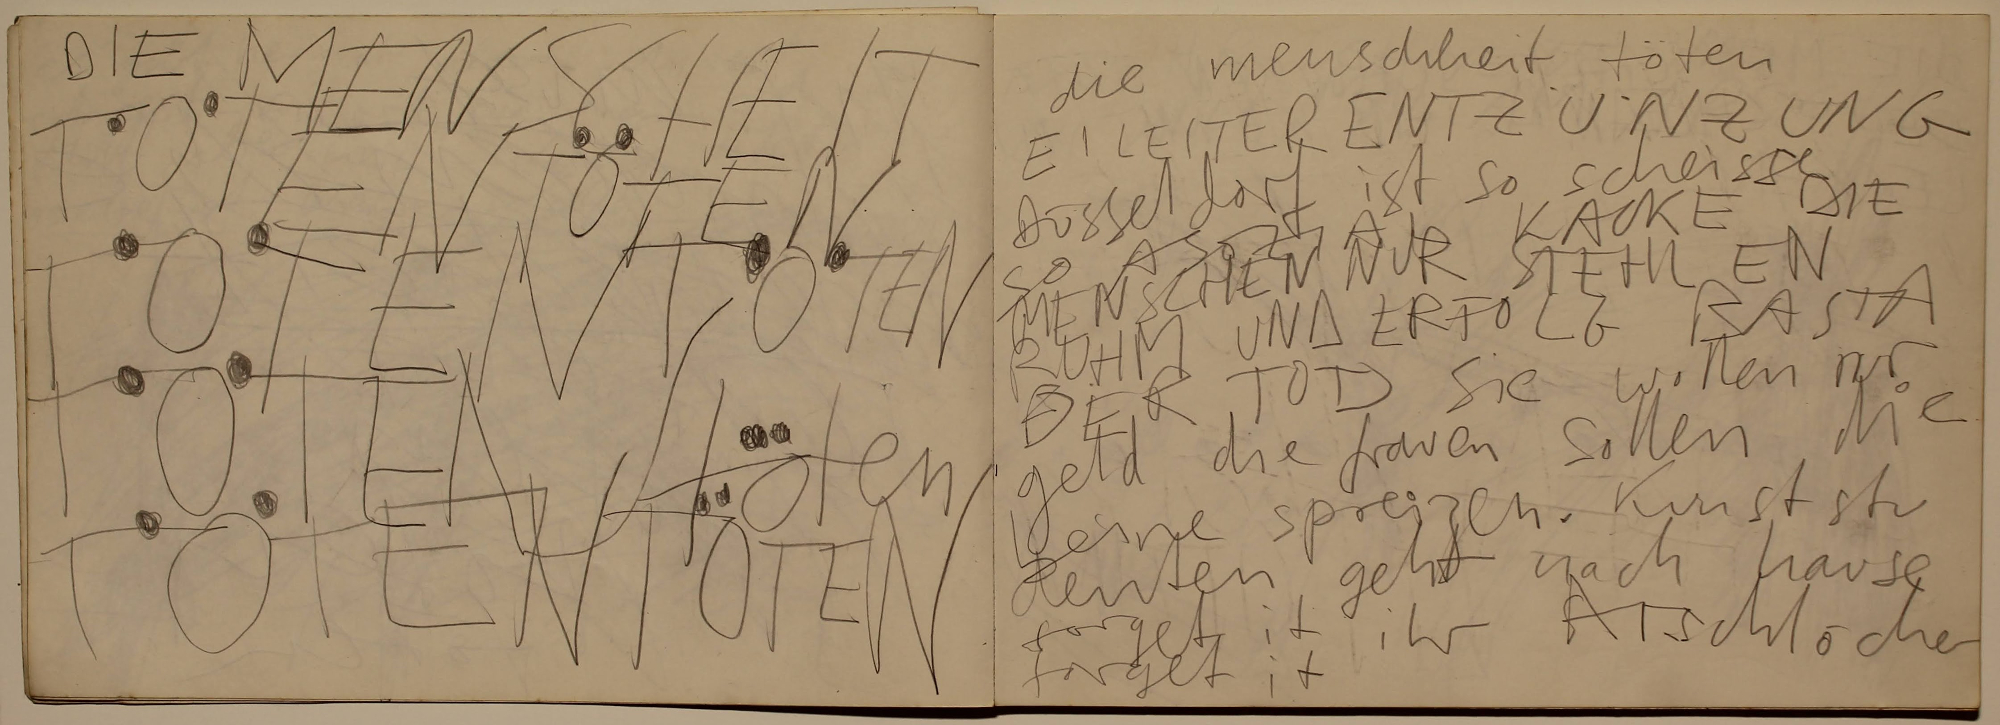 DIE MENSHEIT
TÖTEN TÖTEN
TÖTEN TÖTEN
TÖTEN töten
TÖTEN TÖTEN
die menschheit töten
EILEITER ENTZÜNZUNG
düsseldorf ist so scheisse
SO ASOZIAL KACKE DIE
MENSCHEN NUR STEHLEN
RUHM UND ERFOLG RASTA
DER TOD sie wollen nur
geld die frauen sollen die
beine spreizen. Kunst stu
denten geht nach hause
forget it ihr Arschlöcher
forget it